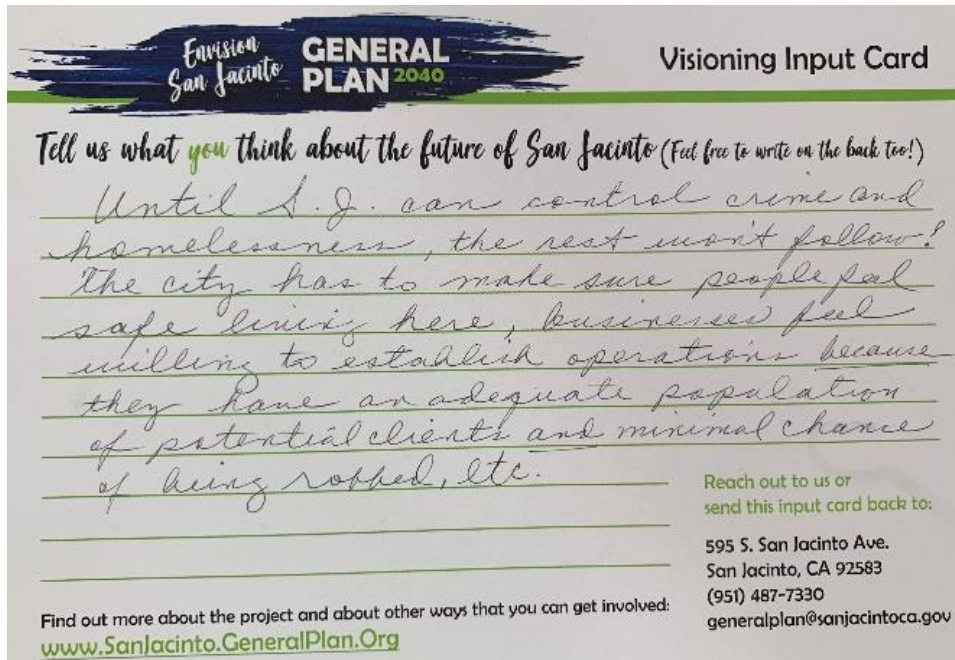 Envision
San Jacinto
GENERAL
PLAN 2040
Visioning Input Card
Tell us what you think about the future of San Jacinto (Feel free to write on the back too!)
Until S.J. can control crime and
homelessness, the rest won't follow!
The city has to make sure people feel
safe living here, businesses feel
willing to establish operations because
they have an adequate population
of potential clients and minimal chance
of being robbed, etc.
Reach out to us or
send this input card back to:
595 S. San Jacinto Ave.
San Jacinto, CA 92583
(951) 487-7330
generalplan@sanjacintoca.gov
Find out more about the project and about other ways that you can get involved:
www.SanJacinto.GeneralPlan.Org